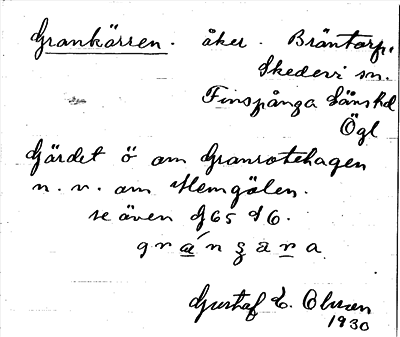 Grankärren. åker. Bräntorp.
Skedevi sn.
Finspånga länshd
Ögl
Gärdet ö om Granrotehagen
n. v. om Hemgölen.
se även J 65 d 6.
Gustaf E. Olsson
1930